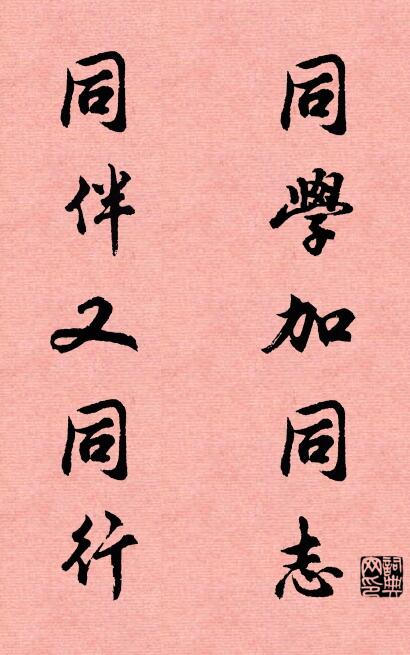 同學加同志
同伴又同行
詞典網印